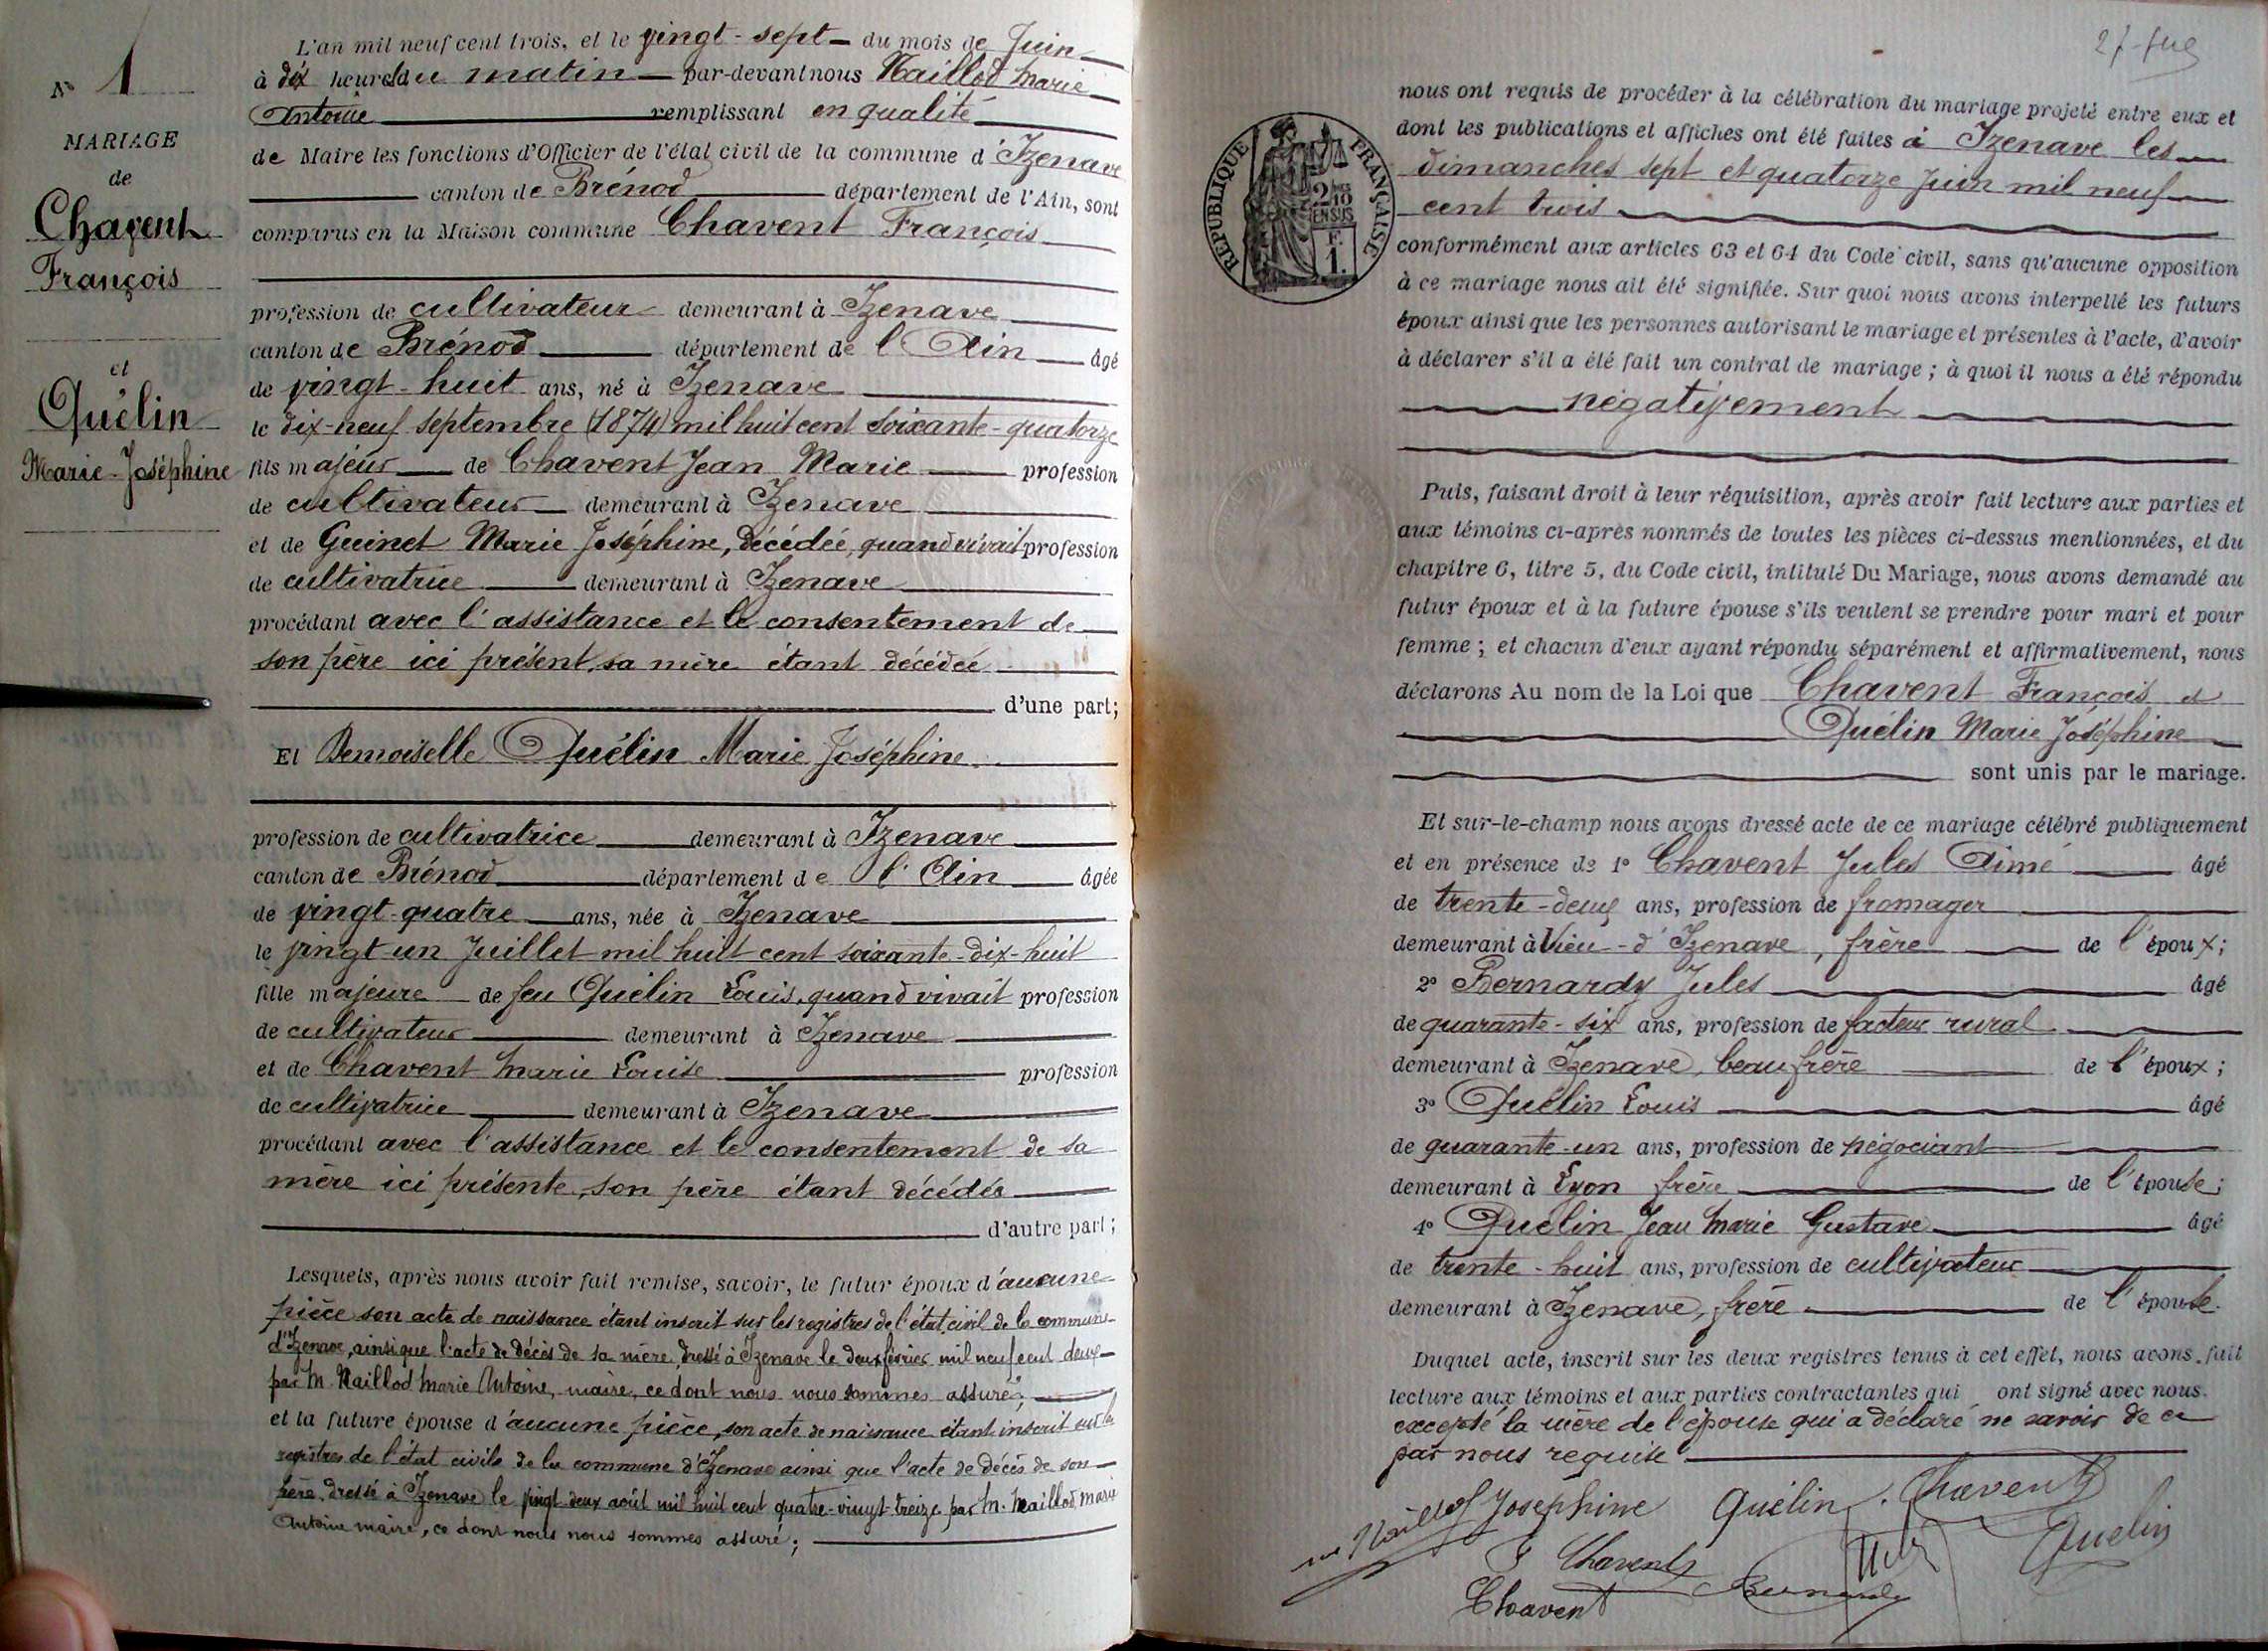 N° 1
MARIAGE
de
Chavent
François
et
Quélin
Marie-Joséphine
L'an mil neuf cent trois, et le vingt-sept du mois de Juin
à dix heures du matin par-devant nous Naillod Marie
Antoine remplissant en qualité
de Maire les fonctions d'Officier de l'état civil de la commune d'Izenave
canton de Brénod département de l'Ain, sont
comparus en la Maison commune Chavent François
profession de cultivateur demeurant à Izenave
canton de Brénod département de l'Ain âgé
de vingt-huit ans, né à Izenave
le dix-neuf septembre (1874) mil huit cent soixante-quatorze
fils majeur de Chavent Jean Marie profession
de cultivateur demeurant à Izenave
et de Guinet Marie Joséphine, décédée, quand vivait profession
de cultivatrice demeurant à Izenave
procédant avec l'assistance et le consentement de
son père ici présent, sa mère étant décédée
d'une part;
Et Demoiselle Quélin Marie Joséphine
profession de cultivatrice demeurant à Izenave
canton de Brénod département de l'Ain âgée
de vingt-quatre ans, née à Izenave
le vingt-un Juillet mil huit cent soixante-dix-huit
fille majeure de feu Quélin Louis, quand vivait profession
de cultivateur demeurant à Izenave
et de Chavent Marie Louise profession
de cultivatrice demeurant à Izenave
procédant avec l'assistance et le consentement de sa
mère ici présente, son père étant décédés
d'autre part;
Lesquels, après nous avoir fait remise, savoir, le futur époux d'aucune
pièce son acte de naissance étant inscrit sur les registres de l'état civil de la commune
d'Izenave, ainsi que l'acte de décès de sa mère, dressé à Izenave le deux février mil neuf cent deux
par M. Naillod Marie Antoine, maire, ce dont nous nous sommes assuré;
et la future épouse d'aucune pièce, son acte de naissance étant inscrit sur les
registres de l'état civils de la commune d'Izenave ainsi que l'acte de décès de son
père, dressé à Izenave le vingt-deux août mil huit cent quatre-vingt-treize par M. Naillod, Marie
Antoine maire, ce dont nous nous sommes assuré;
RÉPUBLIQUE FRANÇAISE
2/10 EN SUS
F. 1.
nous ont requis de procéder à la célébration du mariage projeté entre eux et
dont les publications et affiches ont été faites à Izenave les
dimanches sept et quatorze Juin mil neuf
cent trois
conformément aux articles 63 et 64 du Code civil, sans qu'aucune opposition
à ce mariage nous ait été signifiée. Sur quoi nous avons interpellé les futurs
époux ainsi que les personnes autorisant le mariage et présentes à l'acte, d'avoir
à déclarer s'il a été fait un contrat de mariage; à quoi il nous a été répondu
négativement
Puis, faisant droit à leur réquisition, après avoir fait lecture aux parties et
aux témoins ci-après nommés de toutes les pièces ci-dessus mentionnées, et du
chapitre 6, titre 5, du Code civil, intitulé Du Mariage, nous avons demandé au
futur époux et à la future épouse s'ils veulent se prendre pour mari et pour
femme; et chacun d'eux ayant répondu séparément et affirmativement, nous
déclarons Au nom de la Loi que Chavent François et
Quélin Marie Joséphine
sont unis par le mariage.
Et sur-le-champ nous avons dressé acte de ce mariage célébré publiquement
et en présence de 1° Chavent Jules Aimé âgé
de trente-deux ans, profession de fromager
demeurant à Vieu-d'Izenave, frère de l'époux;
2° Bernardy Jules âgé
de quarante-six ans, profession de facteur rural
demeurant à Izenave, beau frère de l'époux;
3° Quélin Louis âgé
de quarante-un ans, profession de négociant
demeurant à Lyon frère de l'épouse;
4° Quélin Jean Marie Gustave âgé
de trente-huit ans, profession de cultivateur
demeurant à Izenave, frère de l'épouse.
Duquel acte, inscrit sur les deux registres tenus à cet effet, nous avons fait
lecture aux témoins et aux parties contractantes qui ont signé avec nous.
excepté la mère de l'épouse qui a déclaré ne savoir de ce
par nous requise
Naillod Josephine Quélin Chavent
F Chavent Quelin
Chavent Bernardy